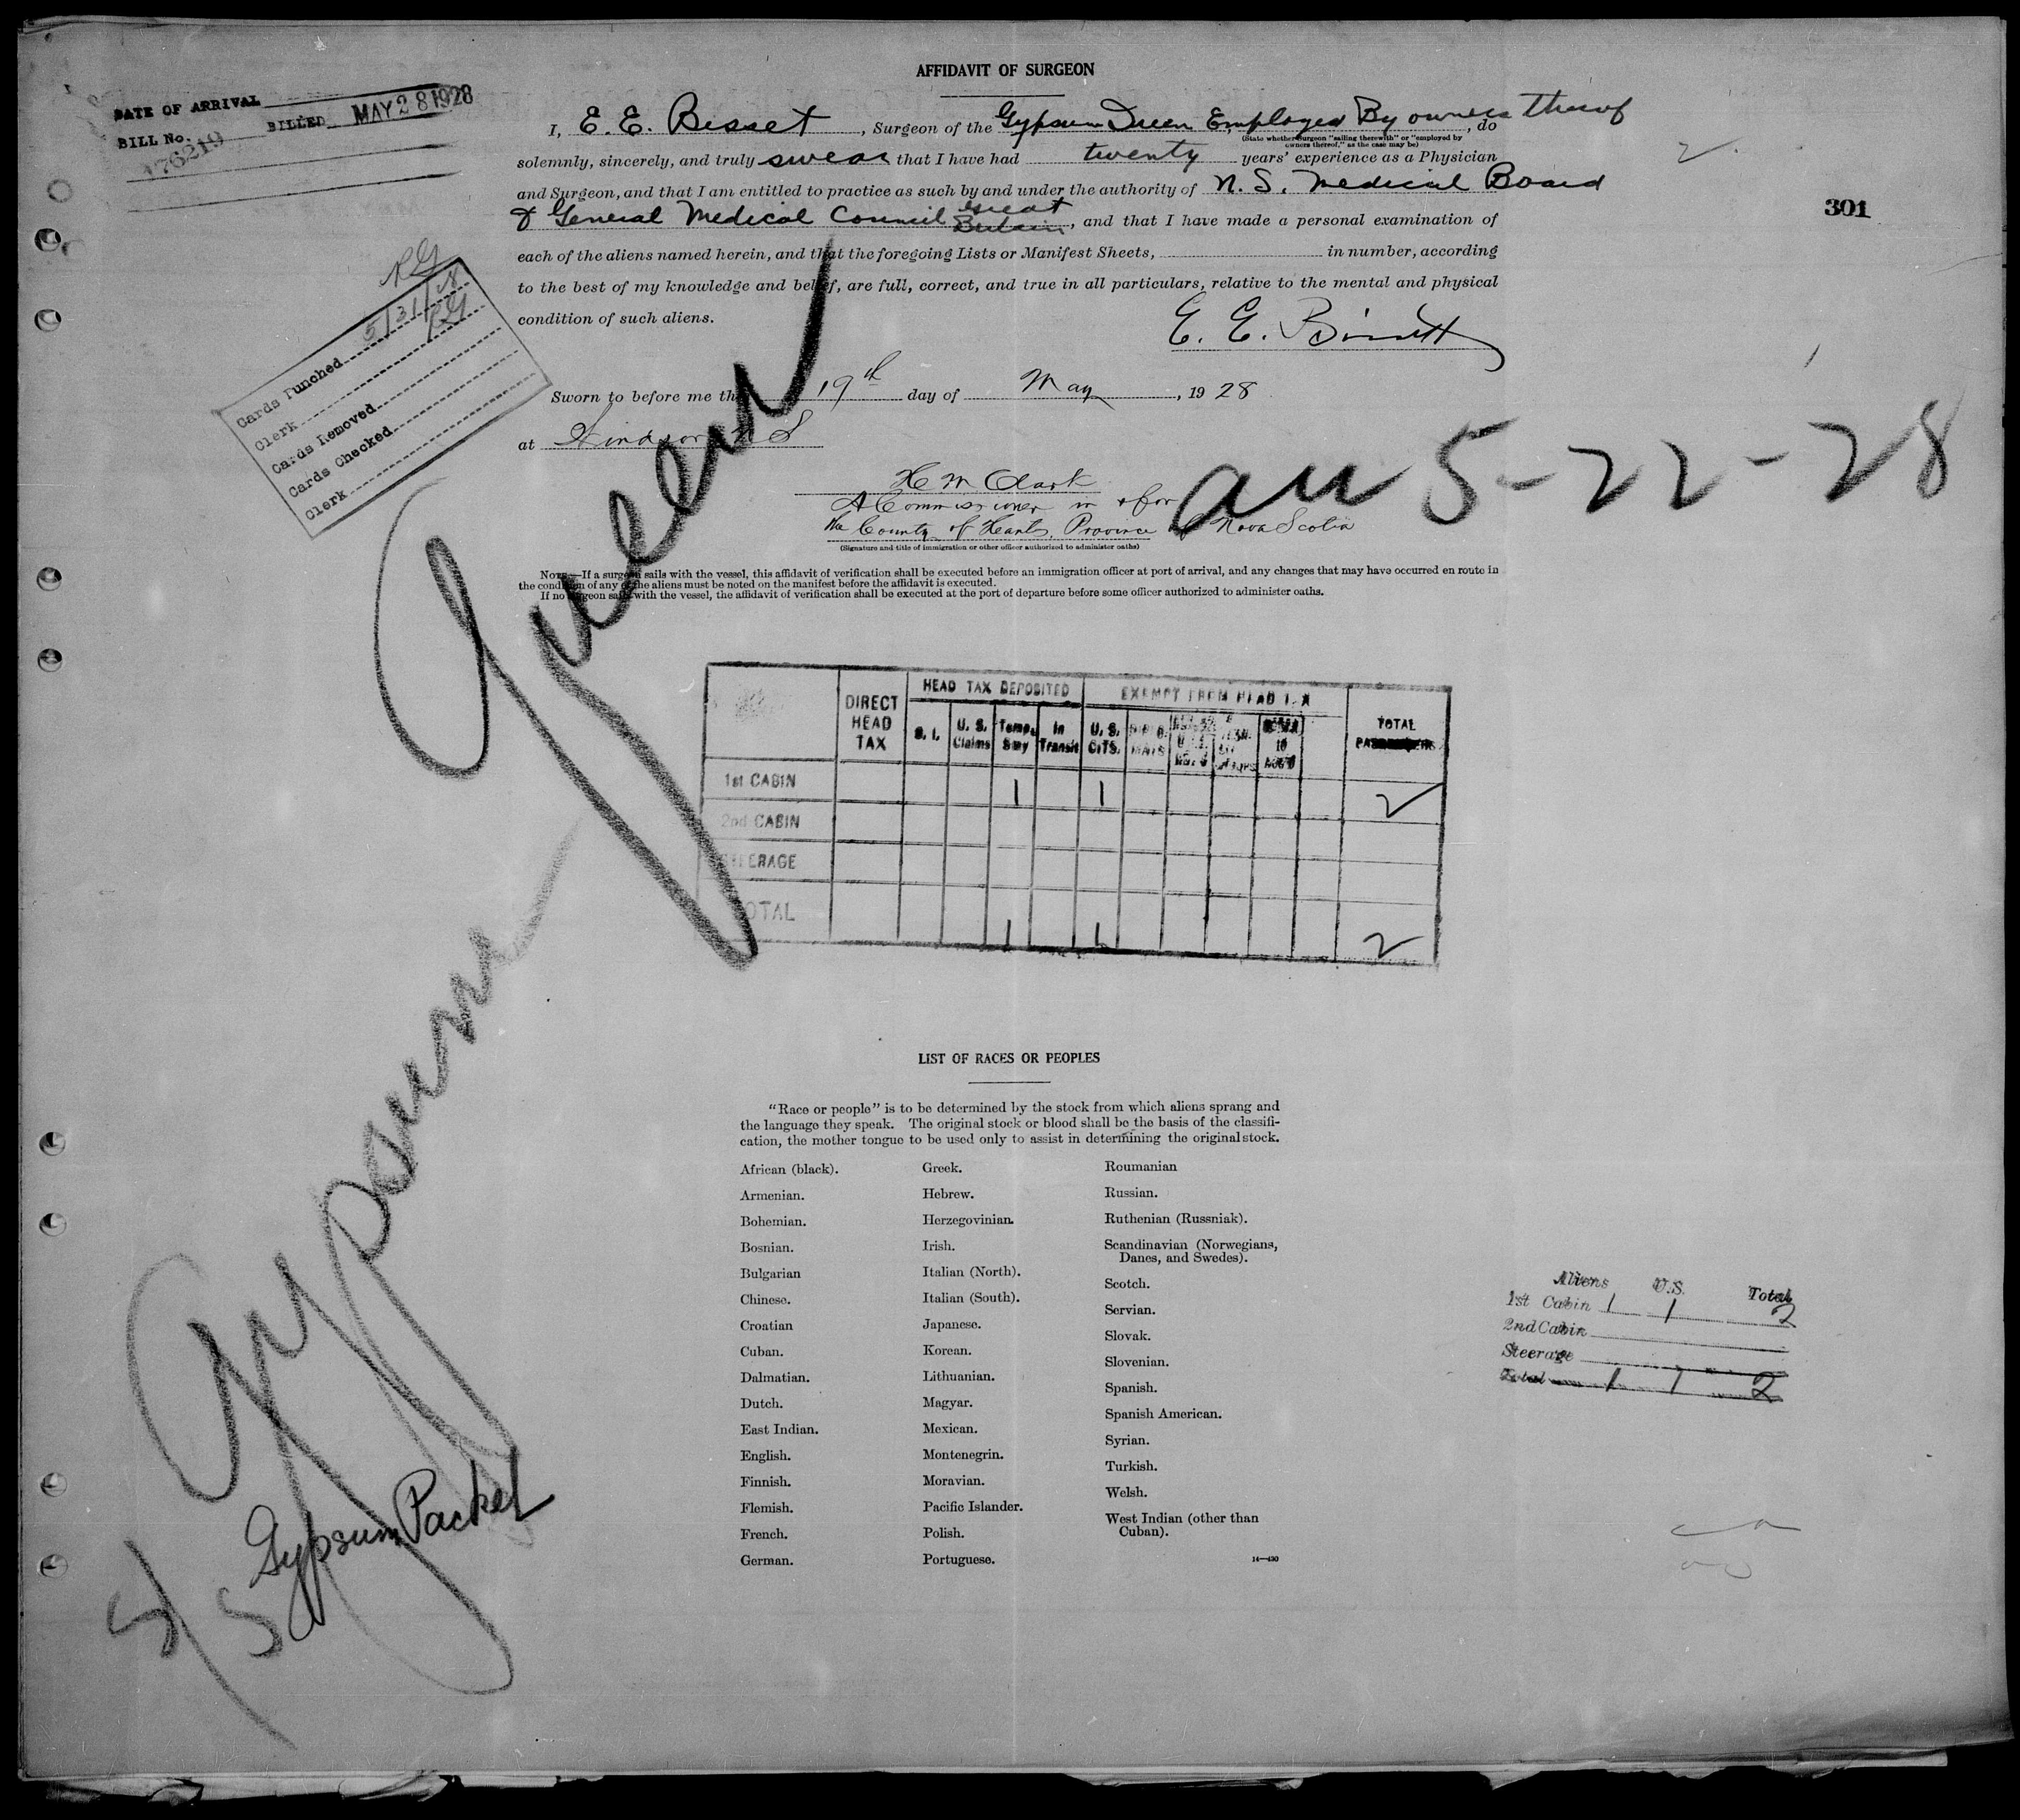 AFFIDAVIT OF SURGEON
DATE OF ARRIVAL
BILL No. 176219 BILLED MAY 28 1928
I, E. E. Bisset, Surgeon of the Gypsum Queen Employed By owners thereof, do
(State whether surgeon "sailing therewith" or "employed by
owners thereof," as the case may be)
solemnly, sincerely, and truly swear that I have had twenty years' experience as a Physician
and Surgeon, and that I am entitled to practice as such by and under the authority of N. S. Medical Board
& General Medical Council Great Britain, and that I have made a personal examination of
each of the aliens named herein, and that the foregoing Lists or Manifest Sheets, in number, according
to the best of my knowledge and belief, are full, correct, and true in all particulars, relative to the mental and physical
condition of such aliens.
2
301
E. E. Bissett
Cards Punched 5/31/28
Clerk
Cards Removed
Cards Checked
Clerk
Sworn to before me this 19th day of May, 1928
at Windsor N S
H M Clark
A Commissioner in & for
the County of Hants, Province of Nova Scotia
(Signature and title of immigration or other officer authorized to administer oaths)
5-22-28
NOTE.—If a surgeon sails with the vessel, this affidavit of verification shall be executed before an immigration officer at port of arrival, and any changes that may have occurred en route in
the condition of any of the aliens must be noted on the manifest before the affidavit is executed.
If no surgeon sails with the vessel, the affidavit of verification shall be executed at the port of departure before some officer authorized to administer oaths.
DIRECT HEAD TAX
HEAD TAX DEPOSITED
EXEMPT FROM HEAD TAX
TOTAL PASSENGERS
S. I. U. S. Claims Temp. Stay In Transit U. S. CITS.
1st CABIN 1 1 2
2nd CABIN
STEERAGE
TOTAL 1 1 2
Gypsum Queen
Gypsum Packet
S/S
LIST OF RACES OR PEOPLES
"Race or people" is to be determined by the stock from which aliens sprang and
the language they speak. The original stock or blood shall be the basis of the classifi-
cation, the mother tongue to be used only to assist in determining the original stock.
African (black).
Armenian.
Bohemian.
Bosnian.
Bulgarian
Chinese.
Croatian
Cuban.
Dalmatian.
Dutch.
East Indian.
English.
Finnish.
Flemish.
French.
German.
Greek.
Hebrew.
Herzegovinian.
Irish.
Italian (North).
Italian (South).
Japanese.
Korean.
Lithuanian.
Magyar.
Mexican.
Montenegrin.
Moravian.
Pacific Islander.
Polish.
Portuguese.
Roumanian
Russian.
Ruthenian (Russniak).
Scandinavian (Norwegians,
Danes, and Swedes).
Scotch.
Servian.
Slovak.
Slovenian.
Spanish.
Spanish American.
Syrian.
Turkish.
Welsh.
West Indian (other than
Cuban).
14—430
Aliens U.S. Total
1st Cabin 1 1 2
2nd Cabin
Steerage
Total 1 1 2